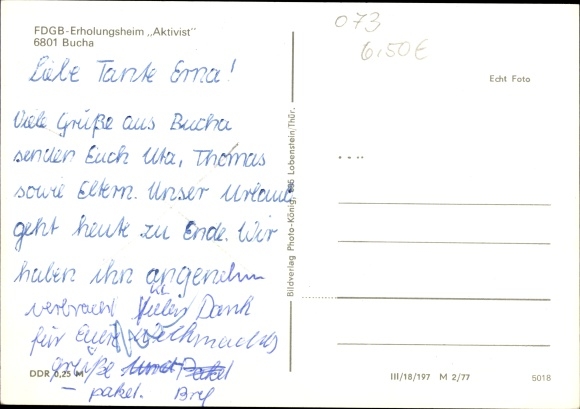 FDGB-Erholungsheim „Aktivist"
6801 Bucha
Liebe Tante Erna!
Viele Grüße aus Bucha
senden Euch Uta, Thomas
sowie Eltern. Unser Urlaub
geht heute zu Ende. Wir
haben ihn angenehm
verbracht. Vielen Dank
für Eure Weihnachts
grüße
paket. Brf
DDR 0,25 M
Bildverlag Photo-König, 685 Lobenstein/Thür.
073
6.50€
Echt Foto
III/18/197 M 2/77
5018